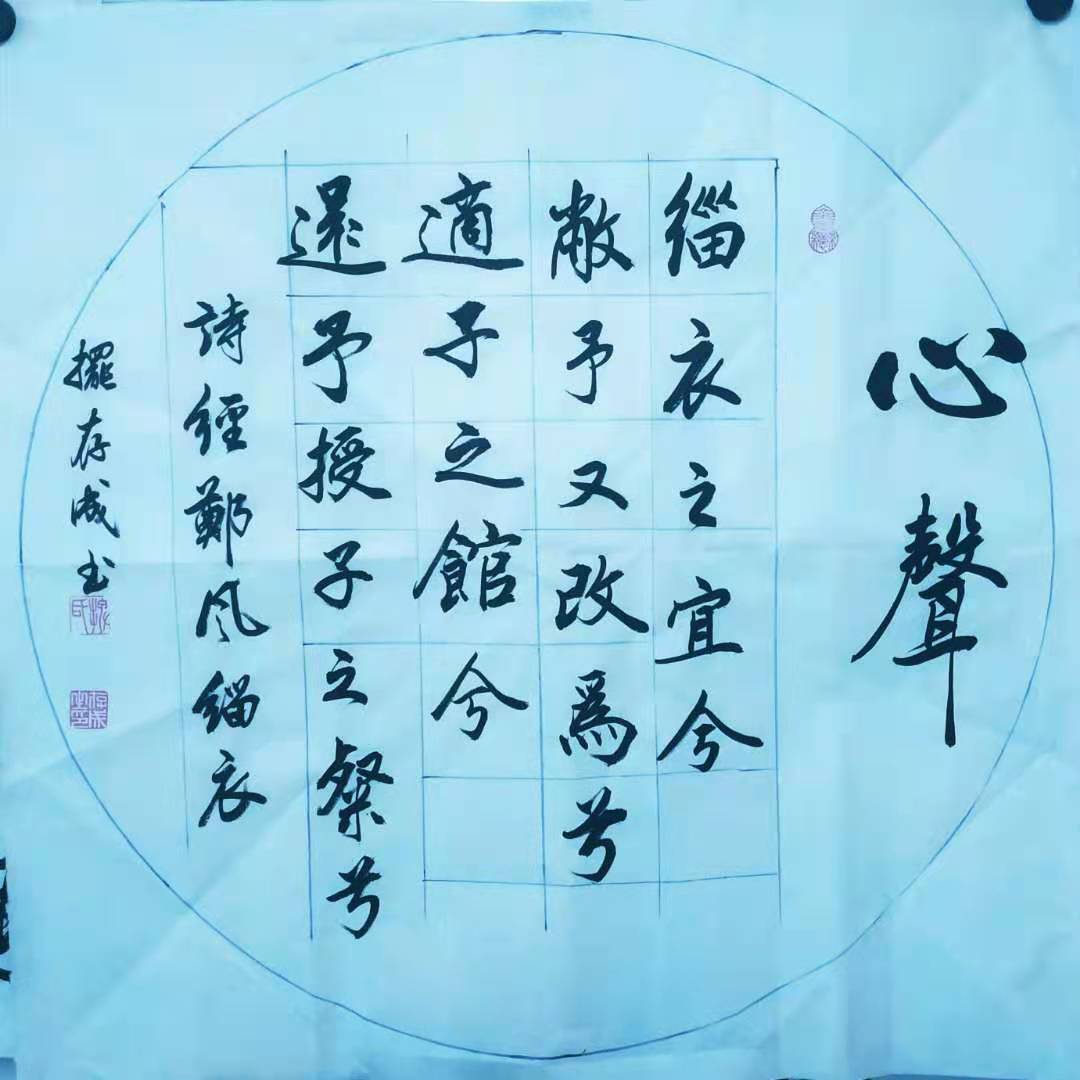 心聲
緇衣之宜兮
敝予又改爲兮
適子之館兮
還予授子之粲兮
詩經鄭風緇衣
擺存成书